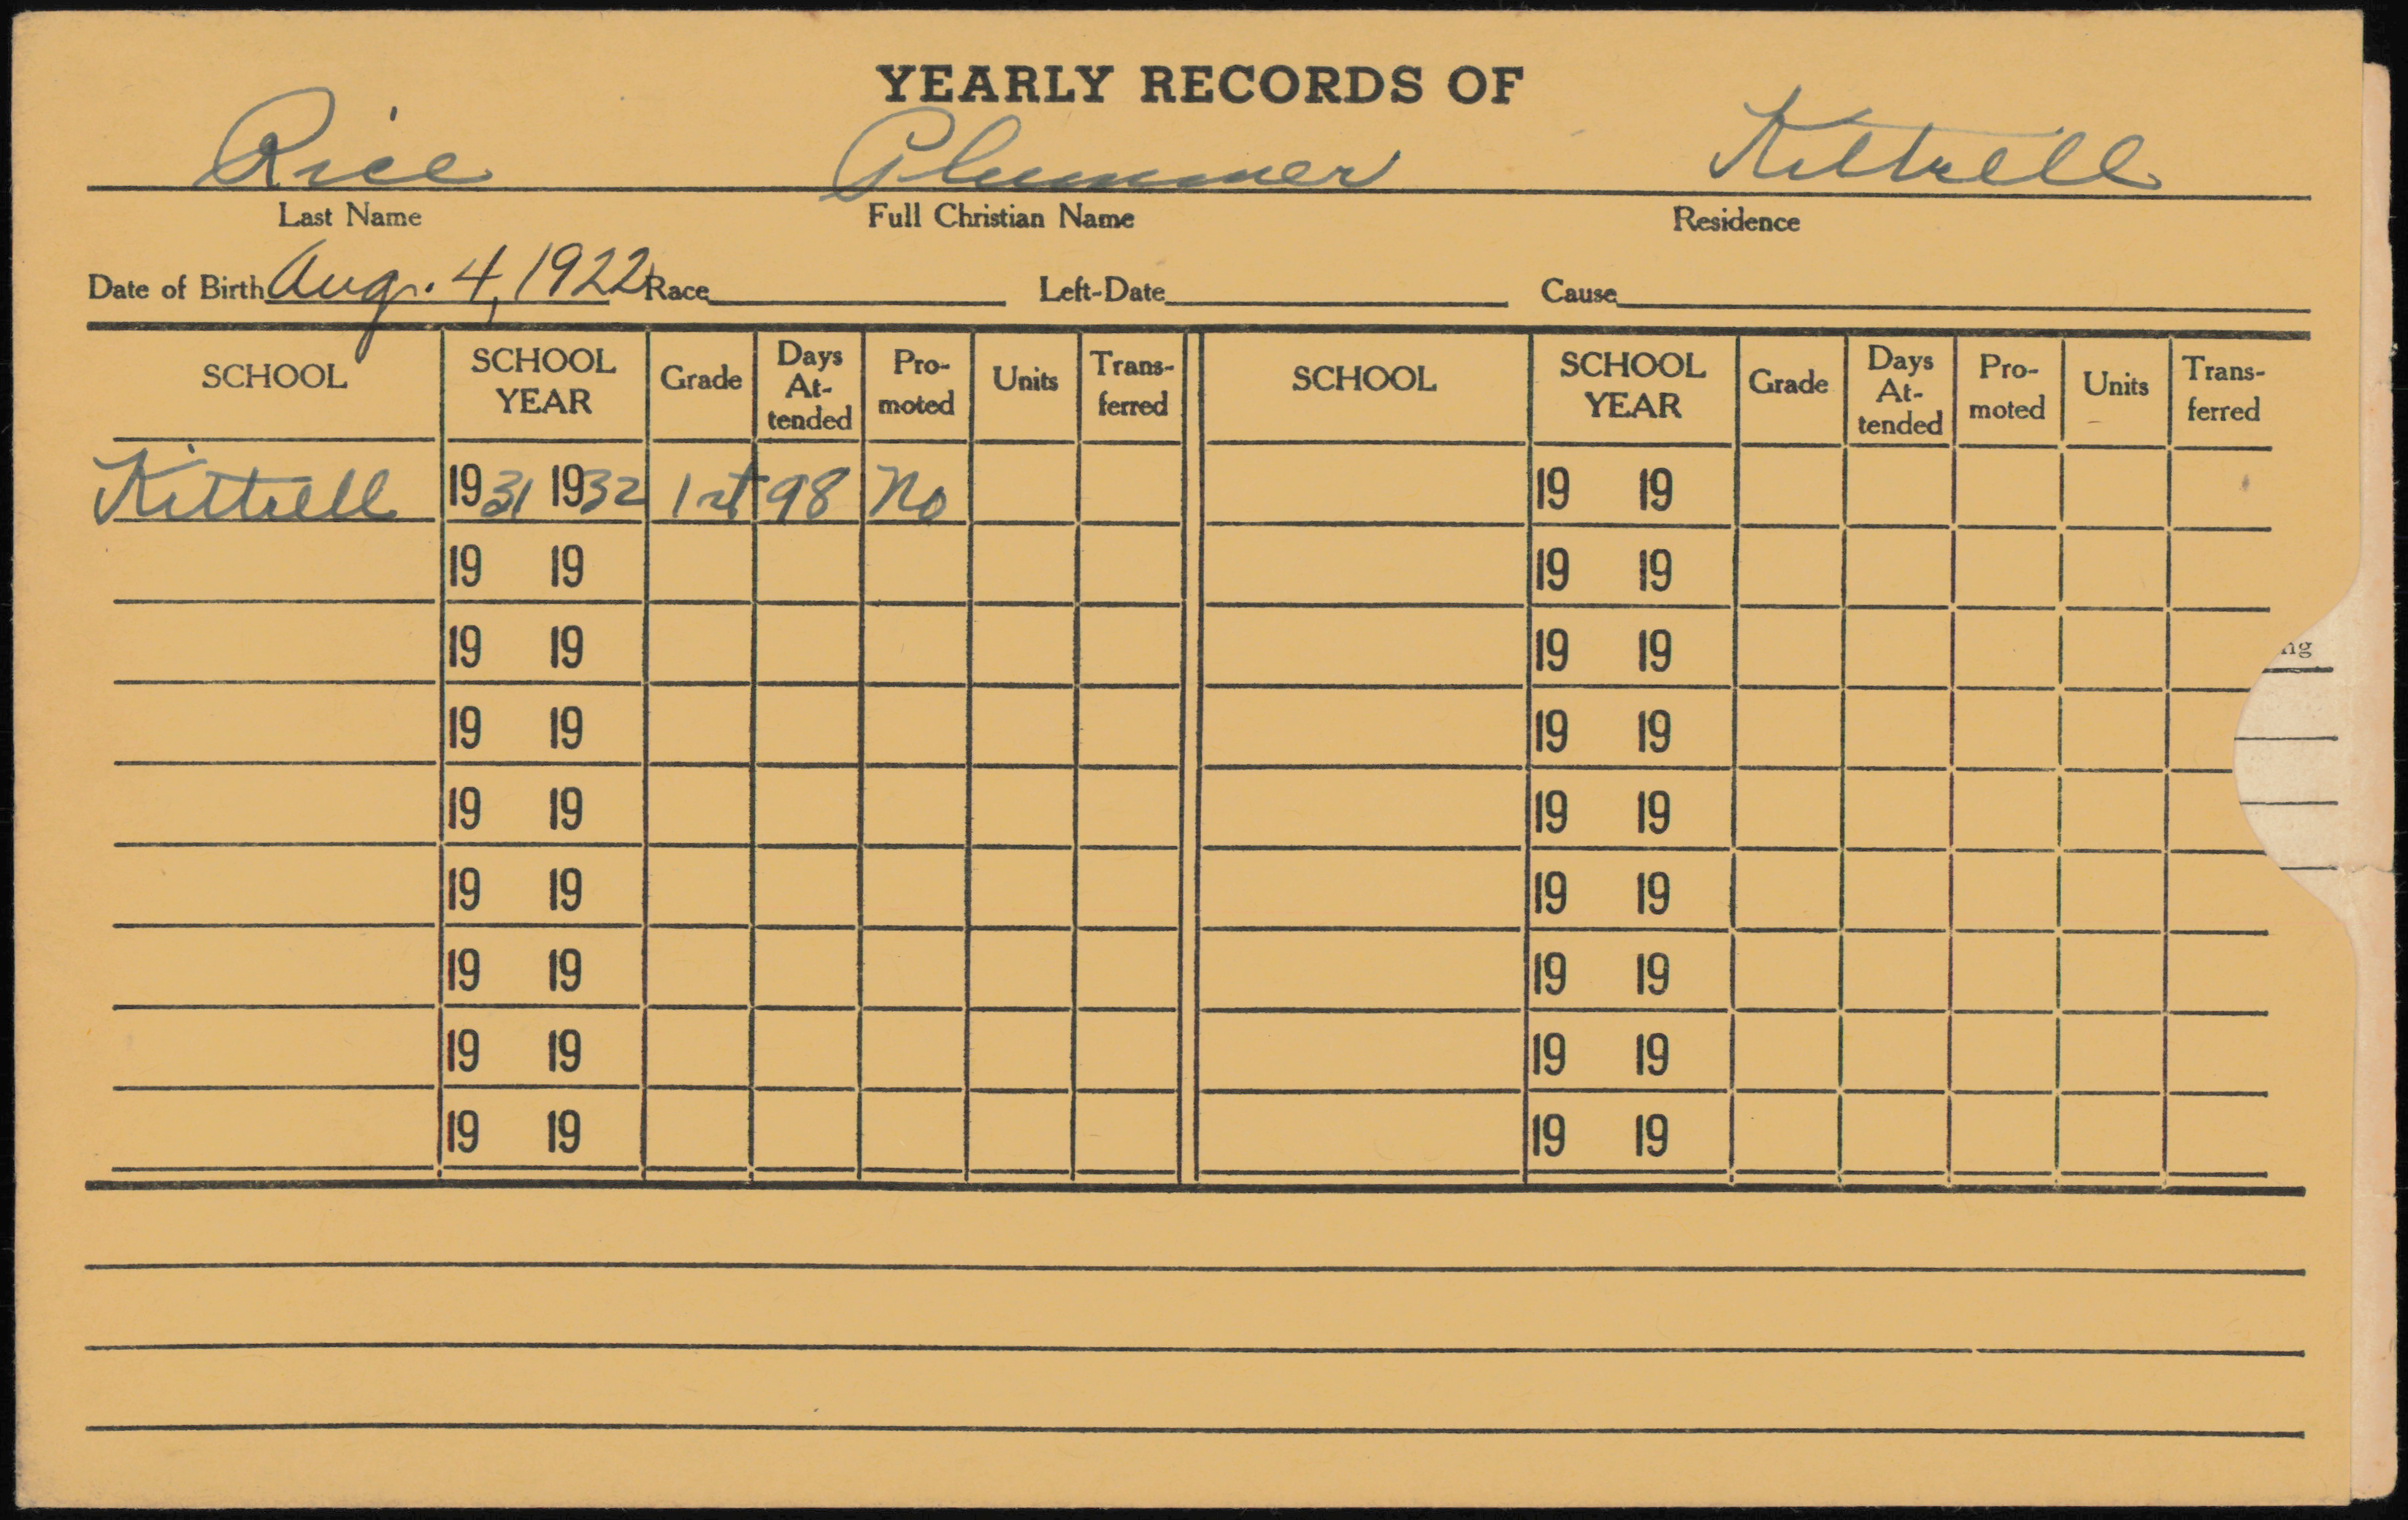 YEARLY RECORDS OF
Rice Plummer Kittrell
Last Name Full Christian Name Residence
Date of Birth Aug. 4, 1922 Race Left-Date Cause
SCHOOL SCHOOL YEAR Grade Days At-tended Pro-moted Units Trans-ferred SCHOOL SCHOOL YEAR Grade Days At-tended Pro-moted Units Trans-ferred
Kittrell 1931 1932 1st 98 No 19 19
19 19 19 19
19 19 19 19
19 19 19 19
19 19 19 19
19 19 19 19
19 19 19 19
19 19 19 19
19 19 19 19